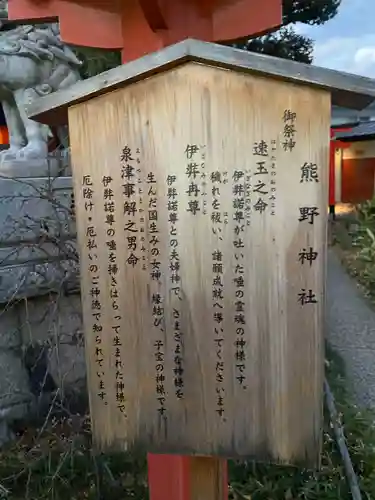 熊野神社
御祭神
速玉之命
はやたまのおのみこと
伊弉諾尊が吐いた唾の霊魂の神様です。
穢れを祓い、諸願成就へ導いてくださいます。
伊弉冉尊
いざなみのみこと
伊弉諾尊との夫婦神で、さまざまな神様を
生んだ国生みの女神、縁結び、子宝の神様です。
泉津事解之男命
よもつことさかのおのみこと
伊弉諾尊の唾を掃きはらって生まれた神様で、
厄除け・厄払いのご神徳で知られています。